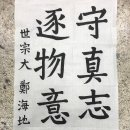 守真志
逐物意
世宗大 鄭海地